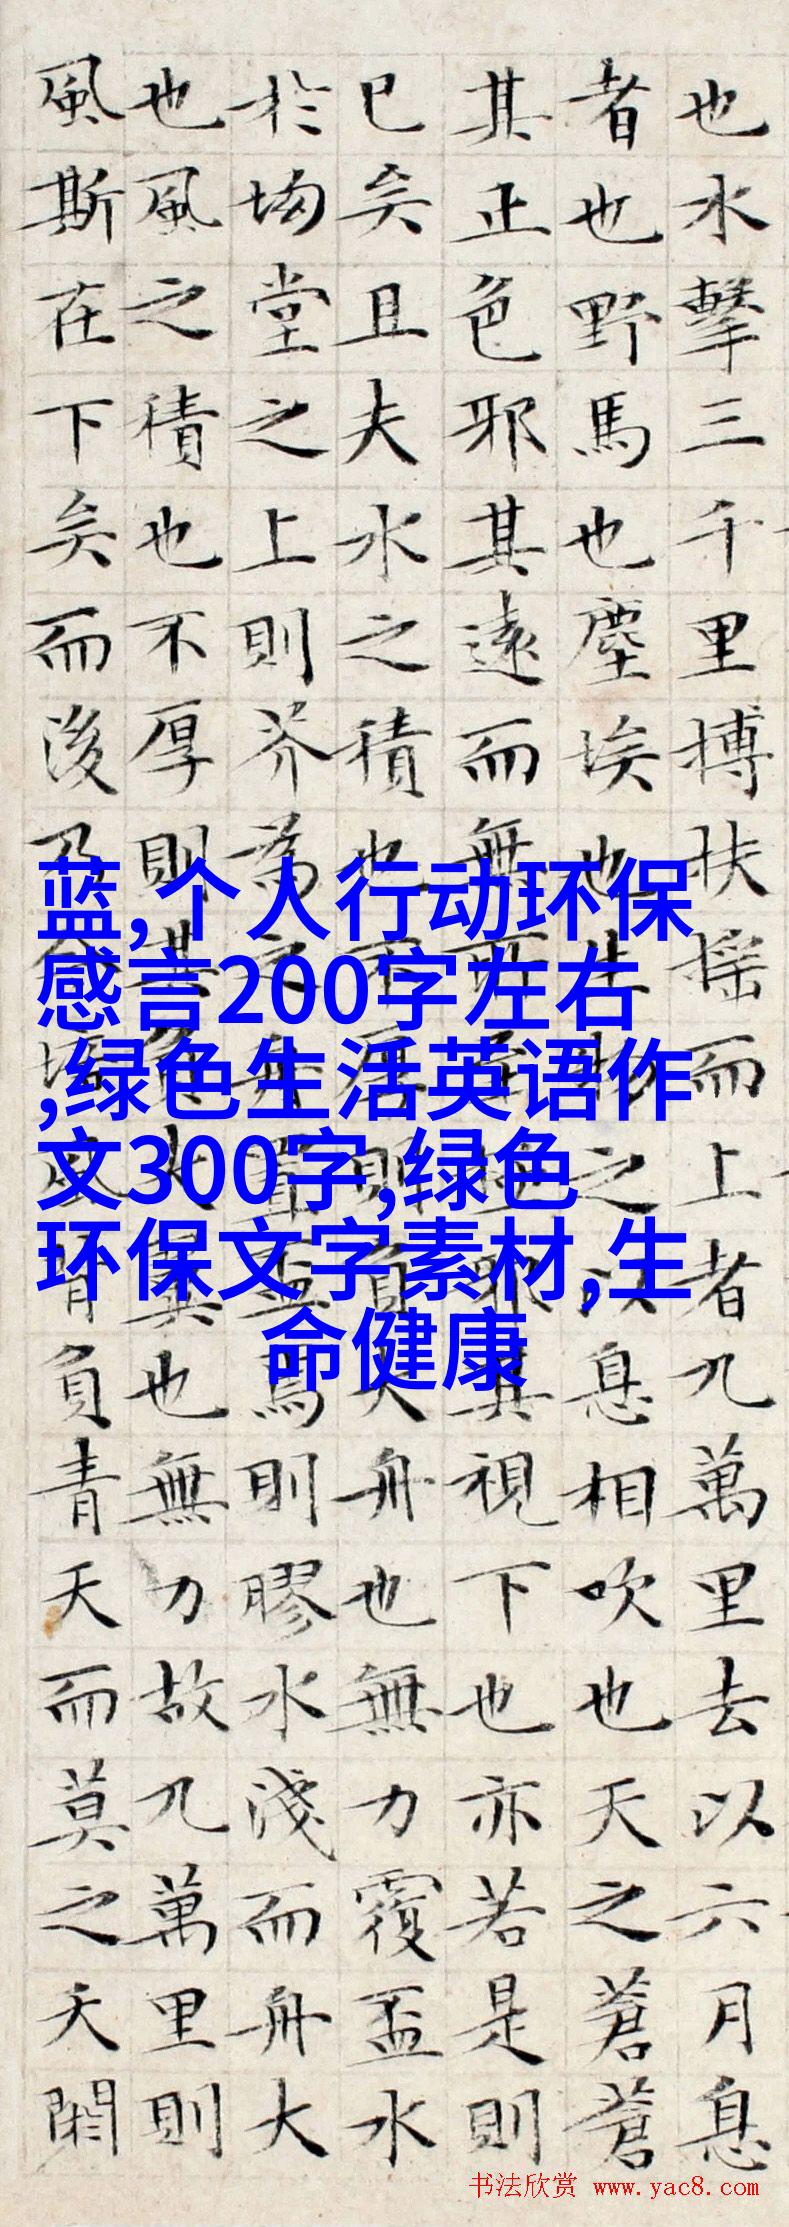 也水擊三千里搏扶搖而上者九萬里去以六月息
者也野馬也塵埃也生物之以息相吹也天之蒼蒼
其正色邪其遠而無所至極邪其視下也亦若是則
已矣且夫水之積也不厚則負大舟也無力覆盃水
於坳堂之上則芥為之舟置盃焉則膠水淺而舟大
也風之積也不厚則其負大翼也無力故九萬里則
風斯在下矣而後乃今培風背負青天而莫之夭閼
蓝,个人行动环保
感言200字左右
,绿色生活英语作
文300字,绿色
环保文字素材,生
命健康
书法欣赏 www.yac8.com